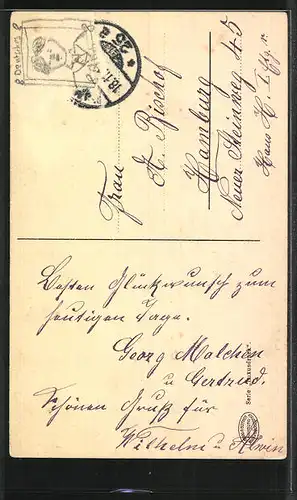 Deutsches
25
8
Frau
H. Bischof
Hamburg
Neuer Steinweg 45
Haus H.
Besten Glückwunsch zum
heutigen Tage.
Georg Malchau
u Gertrud.
Schönen Gruß für
Wilhelm u Alwin
Serie